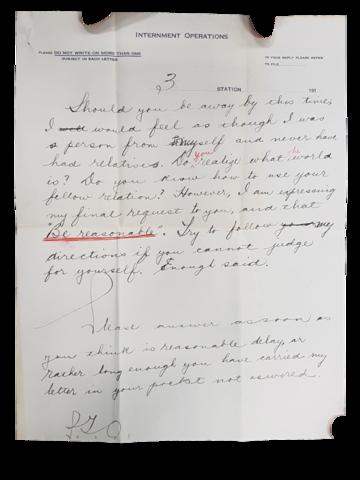 INTERNMENT OPERATIONS
PLEASE DO NOT WRITE ON MORE THAN ONE
SUBJECT IN EACH LETTER
IN YOUR REPLY PLEASE REFER
TO FILE
3
STATION 191
Should you be away by this time
I would feel as though I was
a person from myself and never have
had relatives. Do you realize what the world
is? Do you know how to use your
fellow relation? However, I am expressing
my final request to you, and that
"Be reasonable". Try to follow my
directions if you cannot judge
for yourself. Enough said.
Please answer as soon as
you think is reasonable delay, or
rather long enough you have carried my
letter in your pocket not answered.
P.T.O.